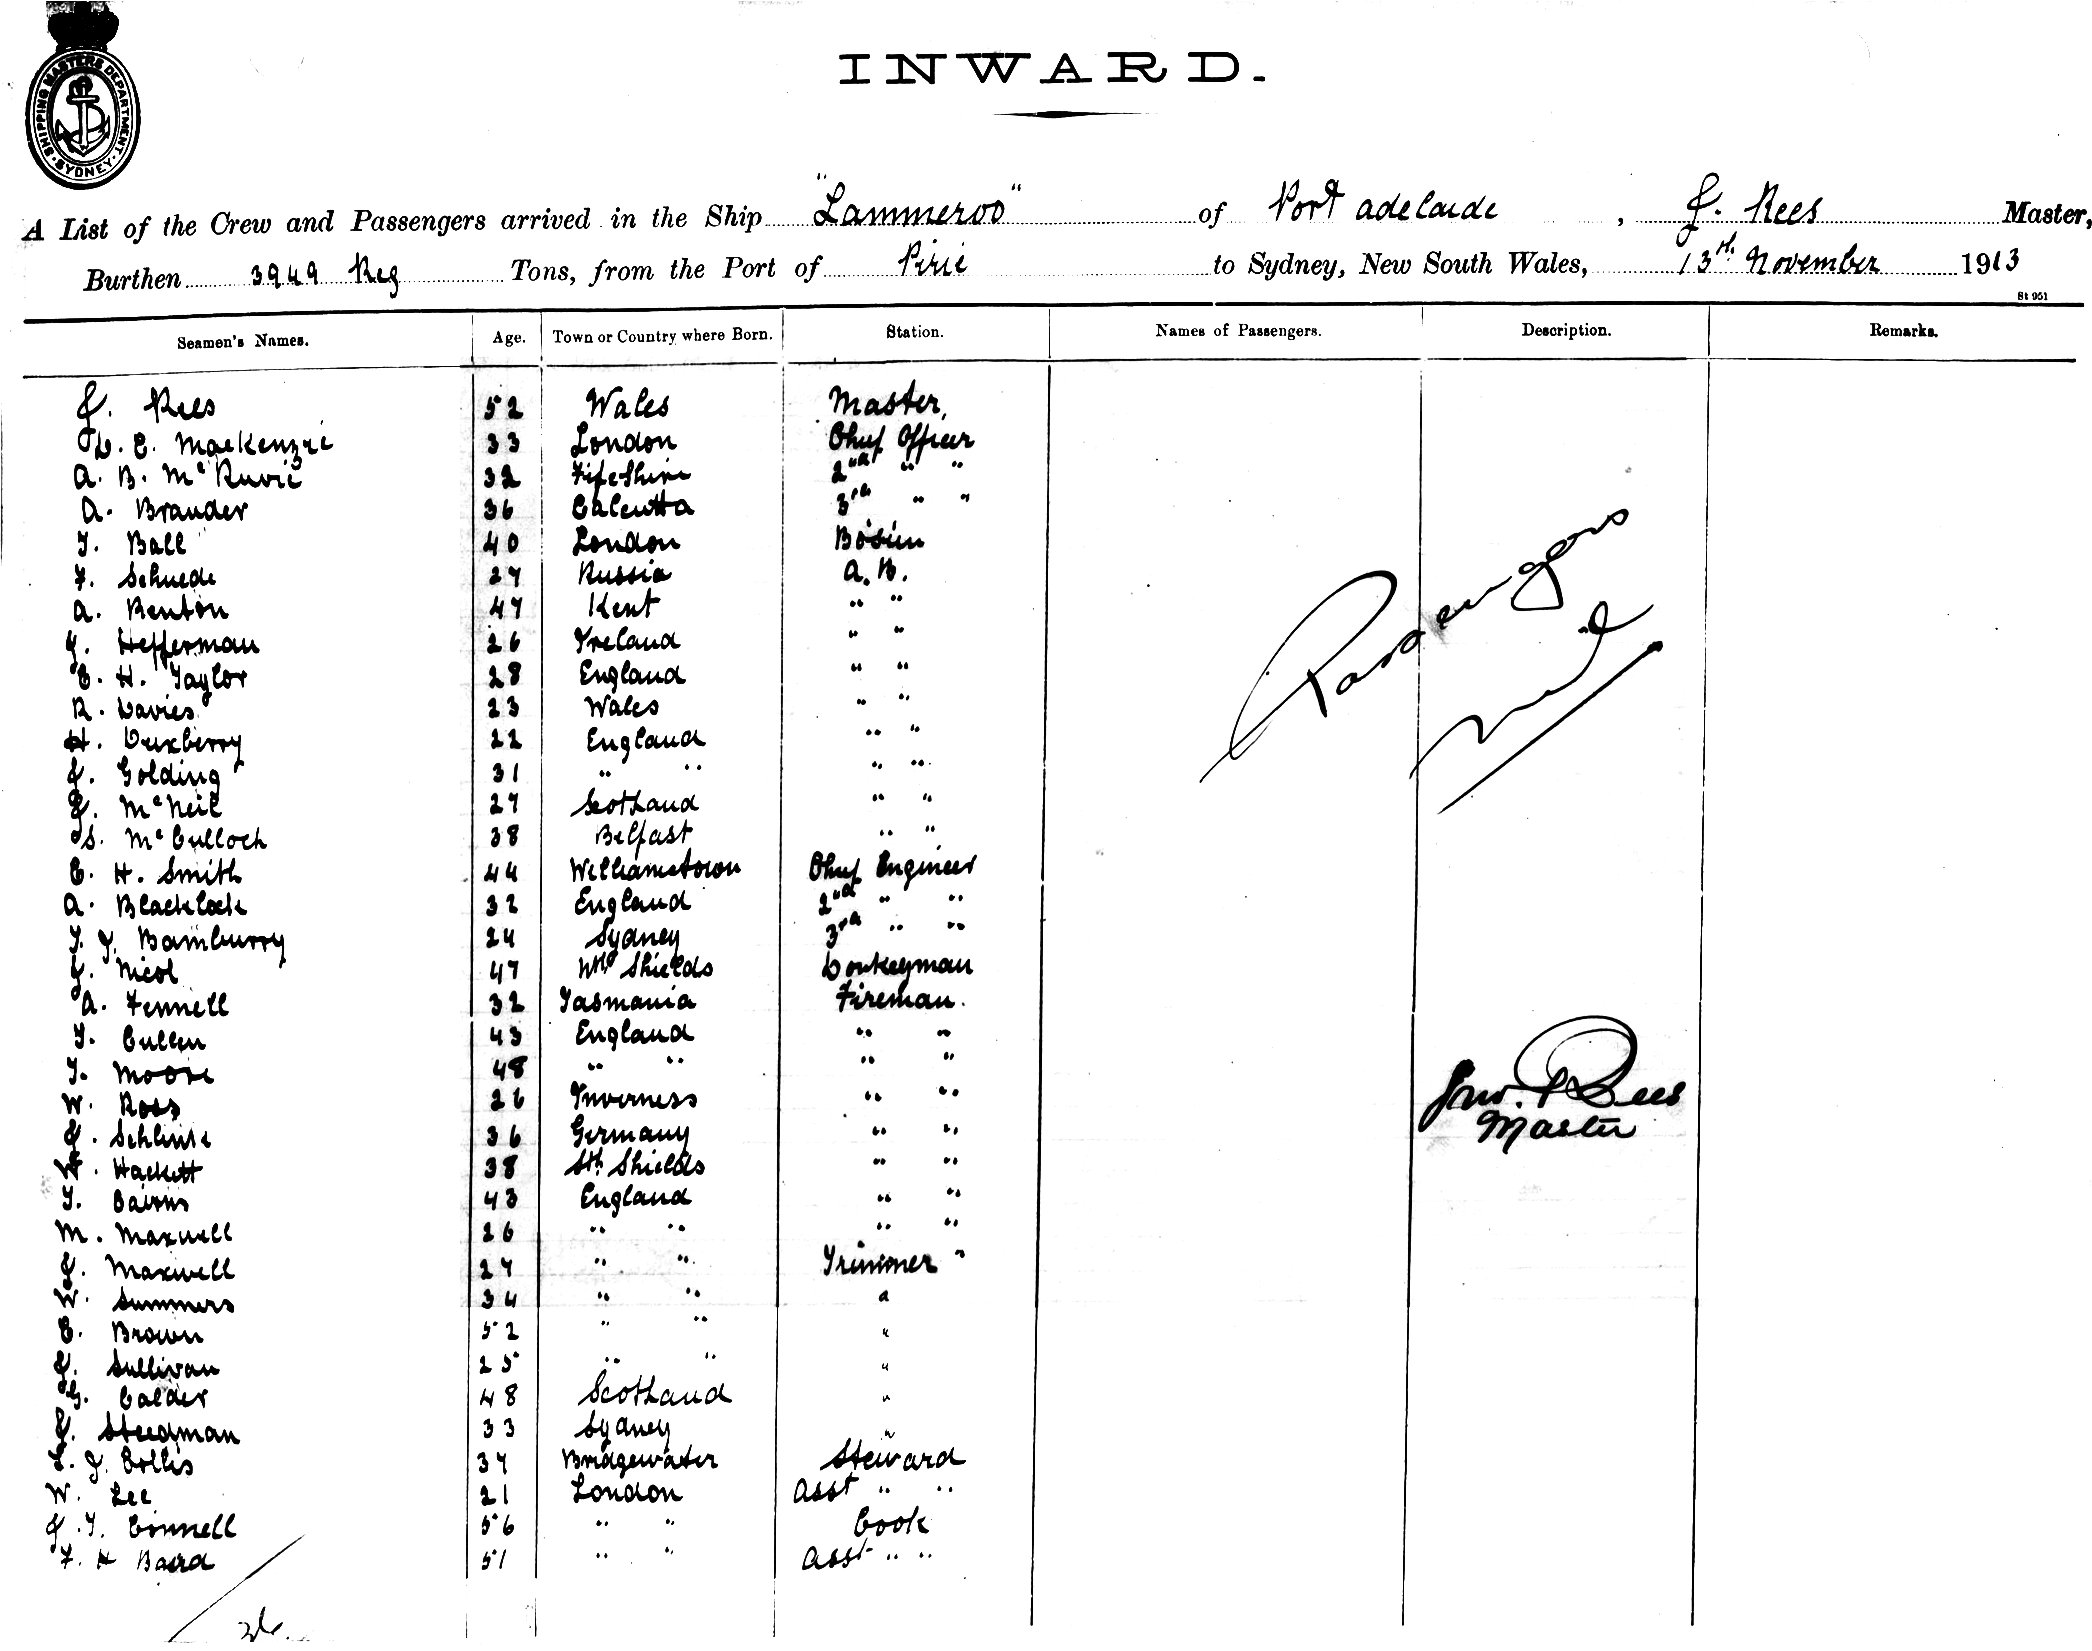 SHIPPING MASTERS DEPARTMENT. SYDNEY.
INWARD.
A List of the Crew and Passengers arrived in the Ship "Lammeroo" of Port Adelaide, J. Rees Master,
Burthen 3949 Reg Tons, from the Port of Pirie to Sydney, New South Wales, 13th November 1913
St 951
Seamen's Names. Age. Town or Country where Born. Station. Names of Passengers. Description. Remarks.
J. Rees 52 Wales Master,
D. C. Mackenzie 33 London Chief Officer
A. B. 32 Fifeshire 2nd " "
A. Brander 36 Calcutta 3rd " "
T. Ball 40 London Bosun
F. Schuede 27 Russia A.B.
A. Renton 47 Kent " "
J. Hefferman 26 Ireland " "
C. H. Taylor 28 England " "
R. Davies 23 Wales " "
H. Duxberry 22 England " "
J. Golding 31 " " " "
J. McNeil 27 Scotland " "
S. McCulloch 38 Belfast " "
C. H. Smith 44 Williamstown Chief Engineer
A. Blacklock 32 England 2nd " "
T. J. Bamburry 24 Sydney 3rd " "
J. Nicol 47 Nth Shields Donkeyman
A. Fennell 32 Tasmania Fireman.
T. Cullen 43 England " "
T. Moore 48 " " " "
W. Ross 26 Inverness " "
J. 36 Germany " "
W. Hackett 38 Sth Shields " "
T. Cairns 43 England " "
M. Maxwell 26 " " " "
J. Maxwell 27 " " Trimmer "
W. Summers 34 " " "
C. Brown 52 " " "
J. Sullivan 25 " " "
G. Calder 48 Scotland "
J. Steedman 33 Sydney "
L. J. Collis 37 Bridgewater Steward
W. Lee 21 London Asst " "
J. T. Connell 56 " " Cook
F. H Baird 51 " " Asst " "
36.
Passengers
Nil
Jno. P Rees
Master